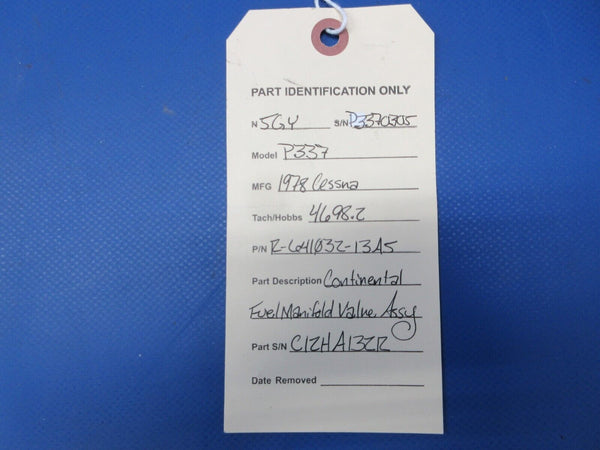 PART IDENTIFICATION ONLY
N 5GY S/N P3370305
Model P337
MFG 1978 Cessna
Tach/Hobbs 4698.2
P/N R-641032-13A5
Part Description Continental
Fuel Manifold Valve Assy
Part S/N C12HA132R
Date Removed